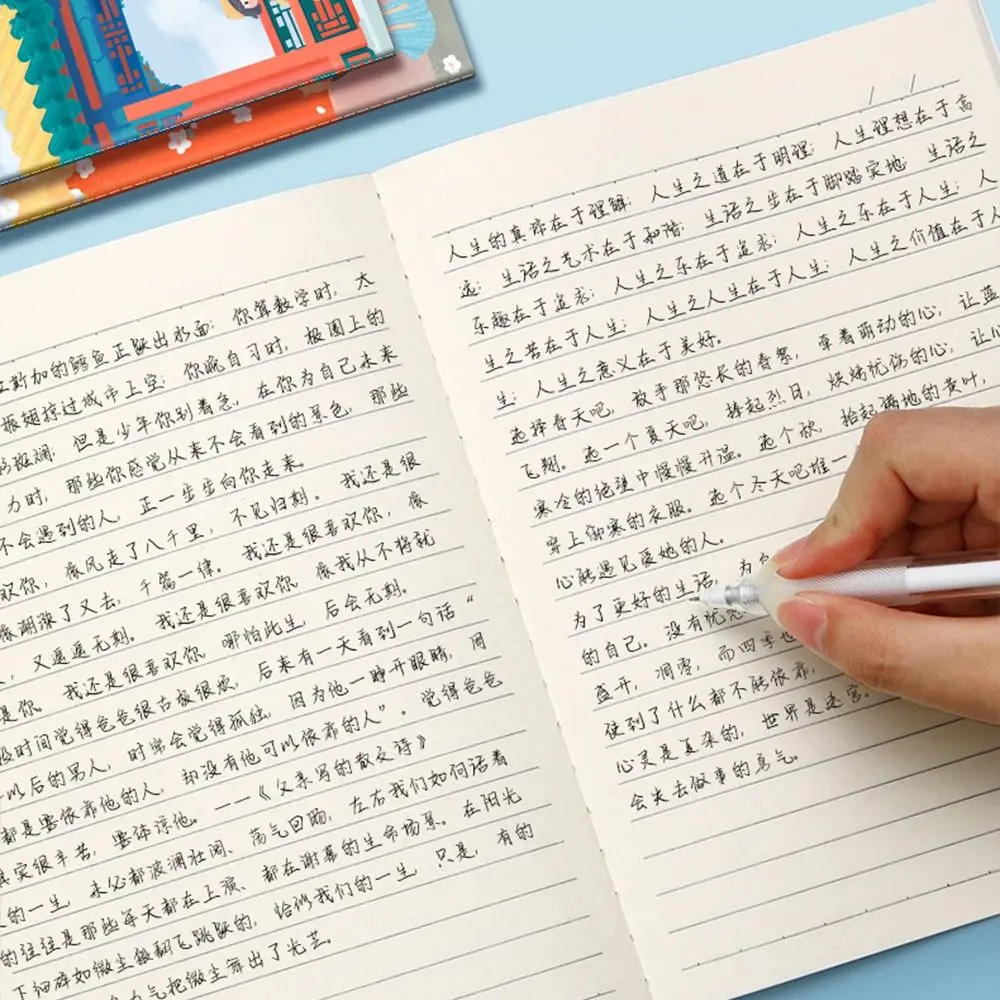 斯加的鳕鱼正跃出水面；你算数学时，太
振翅掠过城市上空；你晚自习时，极圈上的
斑斓．但是少年你别着急，在你为自己未来
力时，那些你感觉从来不会看到的景色，那些
不会遇到的人，正一步步向你走来。
欢你，像风走了八千里，不见归期。我还是很
像潮涨了又去，千篇一律。我还是很喜欢你，像
，又遥遥无期。我还是很喜欢你，像我从不将就
是你。我还是很喜欢你，哪怕此生，后会无期。
段时间觉得爸爸很古板很凶，后来有一天看到一句话“
以后的男人，时常会觉得孤独，因为他一睁开眼睛，周
都是要依靠他的人，却没有他可以依靠的人”．觉得爸爸
其实很辛苦，要体谅他。——《父亲写的散文诗》
的一生，未必都波澜壮阔、荡气回肠，左右我们如何活着
的往往是那些每天都在上演、都在谢幕的生命场景。在阳光
下细碎如微尘般翻飞跳跃的，恰似我们的一生，只是，有的
力气把微尘舞出了光芒。
人生的真谛在于理解；人生之道在于明理；人生理想在于高
远；生活之艺术在于和谐；生活之步在于脚踏实地；生活之
乐趣在于追求；人生之乐在于追求；人生之乐在于人生；人
生之苦在于人生；人生之人生在于人生；人生之价值在于人
生；人生之意义在于美好。
选择春天吧，放手那悠长的眷祭，牵着萌动的心，让蓝
飞翔。选一个夏天吧，捧起烈日，烘烤忧伤的心，让心
寒冷的绝望中慢慢升温。选个秋，拾起满地的黄叶，
穿上御寒的衣服。选个冬天吧堆一
心能遇见爱她的人。
为了更好的生活，为
的自己。没有忧
盛开，凋零，而四季也
使到了什么都不能依靠，
心灵是复杂的，世界是迷宫。
会失去做事的勇气。